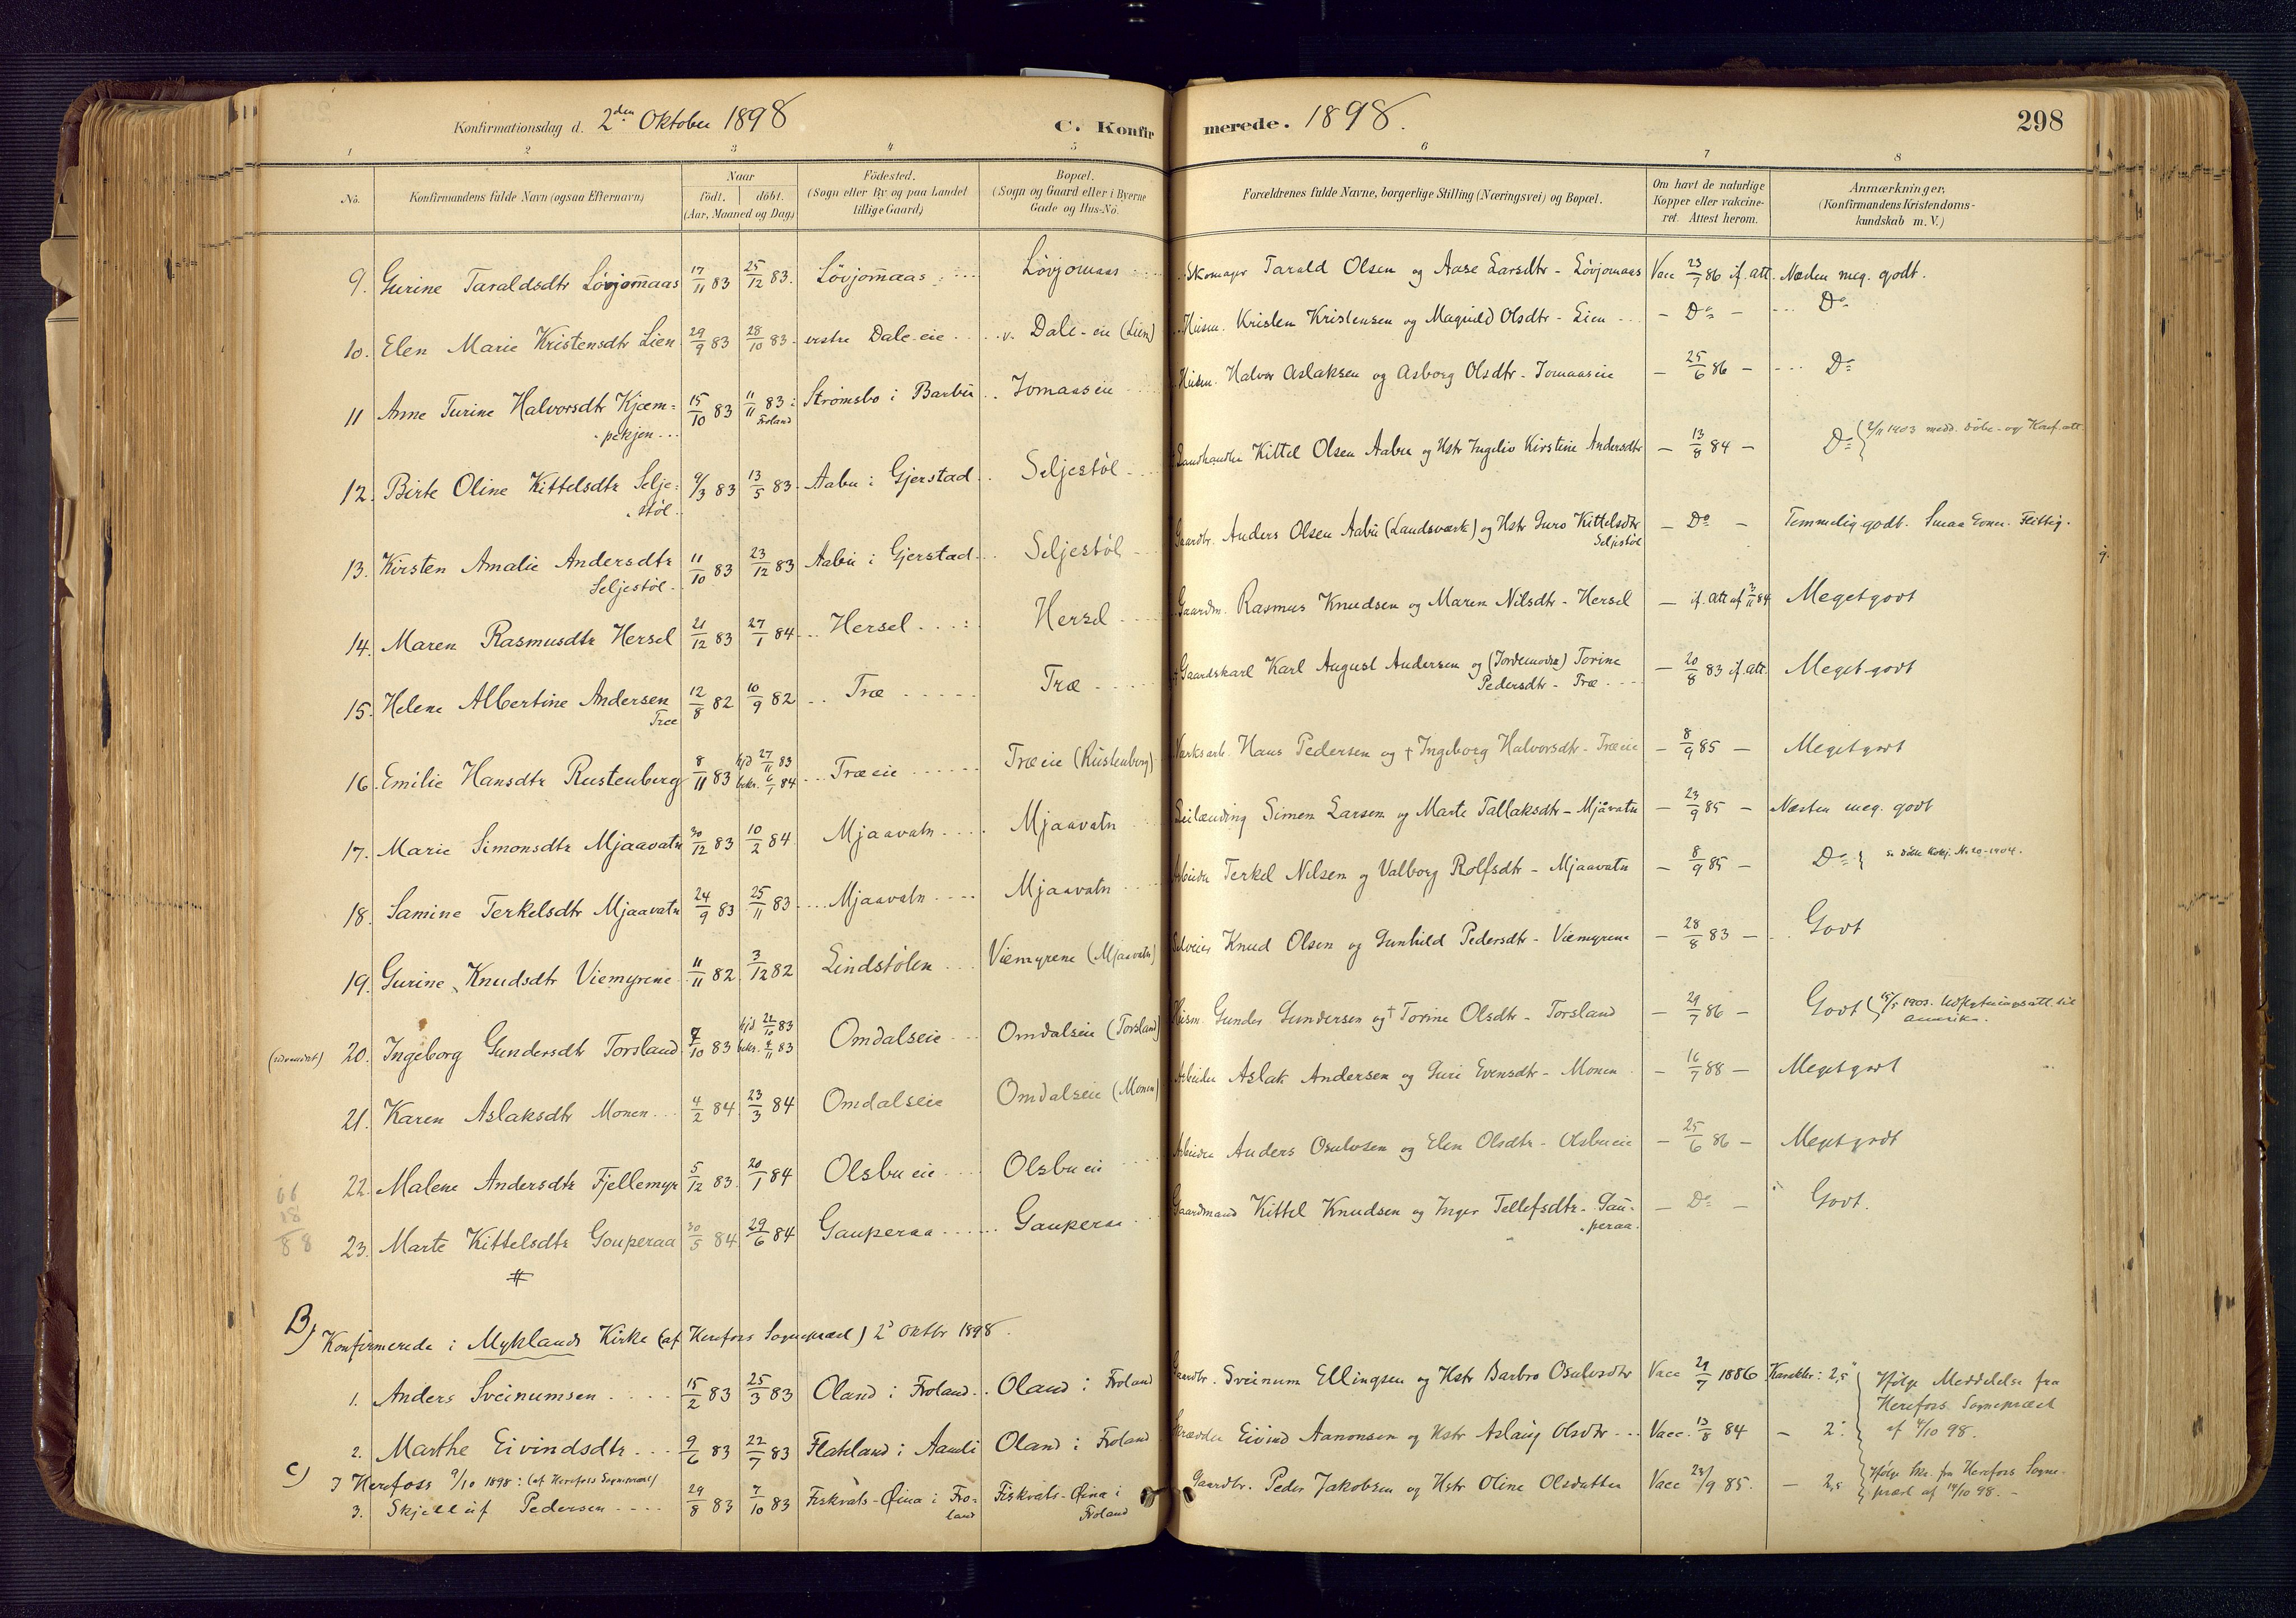 Konfirmationsdag d. 2den Oktober 1898 C. Konfirmerede. 1898. 298
1 2 3 4 5 6 7 8
No. Konfirmandens fulde Navn (ogsaa Efternavn) Naar födt. döbt. (Aar, Maaned og Dag) Födested. (Sogn eller By og paa Landet tillige Gaard) Bopæl. (Sogn og Gaard eller i Byerne Gade og Hus-No. Forældrenes fulde Navne, borgerlige Stilling (Næringsvei) og Bopæl. Om havt de naturlige Kopper eller vakcineret. Attest herom. Anmærkninger, (Konfirmandens Kristendomskundskab m. V.)
9. Gurine Taraldsdtr Lövjomaas 17/11 83 25/12 83. Lövjomaas Lövjomaas Skomager Tarald Olsen og Aase Larsdtr - Lövjomaas Vacc 23/7 86 if. att. Næsten meg. godt.
10. Elen Marie Kristensdtr Lien 29/9 83 28/10 83. vestre Dale-eie v. Dale-eie (Lien) Husm. Kristen Kristensen og Magnild Olsdtr - Lien - Do - Do
11 Anne Turine Halvorsdtr Kjæm=
pekjen 15/10 83 11/11 83: Froland Strömsbo i Barbu Jomaaseie Husm. Halvor Aslaksen og Asborg Olsdtr - Jomaaseie - 25/6 86 - Do
12. Birte Oline Kittelsdtr Selje=
stöl 9/3 83 13/5 83. Aabu i Gjerstad Seljestöl Landhandler Kittel Olsen Aabu og Hstr Ingelio Kirstine Andersdtr - 13/8 84 - Do { 2/11 1903 medd. döbe- og Konf. att.
13. Kirsten Amalie Andersdtr
Seljestöl 11/10 83 23/12 83 Aabu i Gjerstad Seljestöl Gaardbr. Anders Olsen Aabu (Landsværk) og Hstr Guro Kittelsdtr
Seljestöl - Do - Temmelig godt. Smaa Evner. Flittig.
14. Maren Rasmusdtr Hersel 21/12 83 27/1 84 Hersel Hersel Gaardm. Rasmus Knudsen og Maren Nilsdtr - Hersel - if. att af 2/11 84 Megetgodt
15. Helene Albertine Andersen
Træ 12/8 82 10/9 82 Træ Træ Gaardskarl Karl August Andersen og (Jordemoder) Torine
Pedersdtr - Træ - 20/8 83 if. att. Meget godt
16. Emilie Hansdtr Rustenberg 8/11 83 hjd 27/11 83 bekr. 6/1 84 Træeie Træeie (Rustenberg) Værksarb. Hans Pedersen og † Ingeborg Halvorsdtr - Træeie - 8/9 85 - Megetgodt
17. Marie Simonsdtr Mjaavatn 30/12 83 10/2 84 Mjaavatn Mjaavatn Leilænding Simen Larsen og Marte Tallaksdtr - Mjåvatn - 23/9 85 - Næsten meg. godt
18. Samine Terkelsdtr Mjaavatn 24/9 83 25/11 83 Mjaavatn Mjaavatn Arbeider Terkel Nilsen og Valborg Rolfsdtr - Mjaavatn - 8/9 85 - Do
19. Gurine Knudsdtr Viemyrene 11/11 82 3/12 82 Lindstölen Viemyrene (Mjaavatn) Selveier Knud Olsen og Gunhild Pedersdtr - Viemyrene - 28/8 83 - Godt
20. Ingeborg Gundersdtr Torsland 7/10 83 hjd 22/10 83 bekr. 4/11 83 Omdalseie Omdalseie (Torsland) Husm. Gunder Gundersen og † Torine Olsdtr - Torsland - 29/7 86 - Godt { 15/5 1903. Udflytningsatt. til
Amerika.
21. Karen Aslaksdtr Monen 4/2 84 23/3 84 Omdalseie Omdalseie (Monen) Arbeider Aslak Andersen og Guri Evensdtr - Monen - 16/7 88 - Megetgodt
22. Malene Andersdtr Fjellemyr 5/12 83 20/1 84 Olsbu eie Olsbu eie Arbeider Anders Osulvsen og Elen Olsdtr - Olsbueie - 25/6 86 - Megetgodt
66
18
88
23. Marte Kittelsdtr Gouperaa 30/5 84 29/6 84 Gauperaa Gauperaa Gaardmand Kittel Knudsen og Inger Tellefsdtr - Gau-
peraa. - Do - Godt.
B) Konfirmerede i Myklands Kirke (af Herefoss Sognepræst) 2d Oktbr 1898.
1. Anders Sveinumsen 15/2 83 25/3 83 Oland i Froland Oland i Froland Gaardbr. Sveinum Ellingsen og Hstr Barbro Osulvsdtr Vacc 29/7 1886 Karakter: 2,5 { Ifölge Meddelelse fra
Herefoss Sognepræst
2. Marthe Eivindsdtr 9/6 83 22/7 83 Flateland i Aamli Oland i Froland Skrædder Eivind Aanonsen og Hstr Aslaug Olsdtr Vacc. 13/8 84 - 2. af 4/10 98.
C) I Herefoss 9/10 1898: (af Herefoss Sognepræst)
3. Skjelluf Pedersen 29/8 83 7/10 83 Fiskvats-Öina i Fro-
land Fiskvats-Öina i
Froland Gaardbr. Peder Jakobsen og Hstr Oline Olsdatter Vacc 28/9 85. - 2,5 { Ifölge Skr. fra Herefoss Sogne-
præst af 14/10 98.